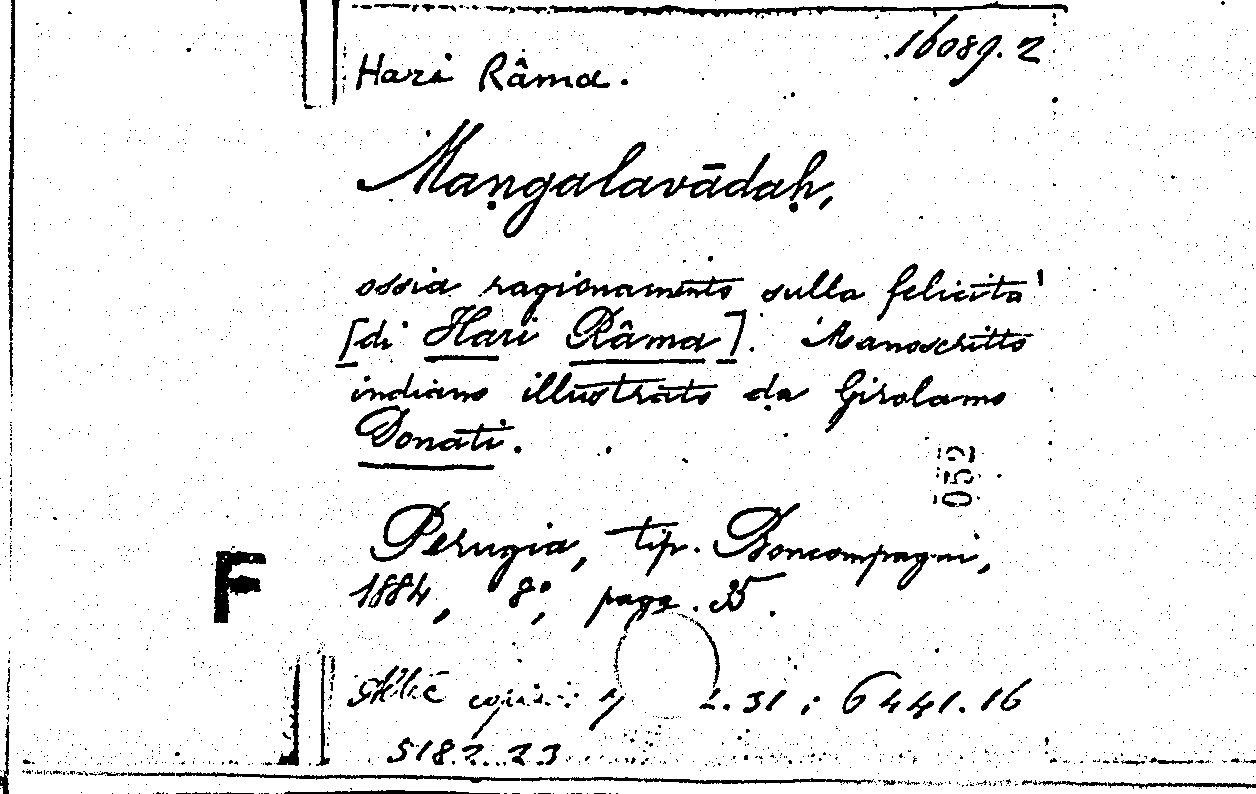 16089.2
Hari Râma.
Maṇgalavādaḥ,
ossia ragionamento sulla felicità
[di Hari Râma]. Manoscritto
indiano illustrato da Girolamo
Donati.
052
Perugia, tip. Boncompagni,
1884, 8°, pagg. 35.
F
Altre copie: 2.31; 6441.16
5182.23